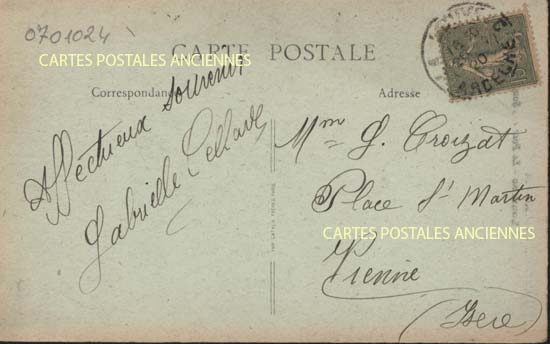 0701024
CARTE POSTALE
CARTES POSTALES ANCIENNES
Correspondance
Adresse
Affectueux souvenir
Gabrielle
Mme G. Croizat
Place St Martin
CARTES POSTALES ANCIENNES
Vienne
(Isère)